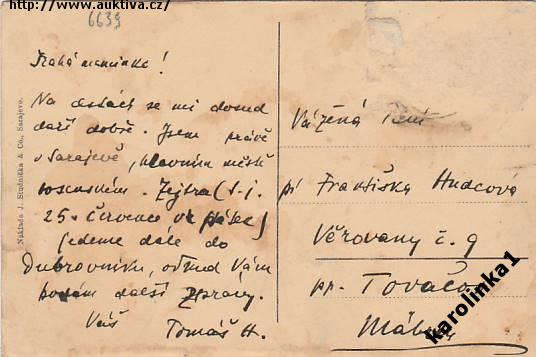 http://www.auktiva.cz/
6639
Drahá maminko!
Na cestách se mi dosud
daří dobře. Jsem právě
v Sarajevě, hlavním městě
bosenském. Zejtra (t. j.
25. července v pátek)
jedeme dále do
Dubrovníku, odkud Vám
podám další zprávy.
Váš Tomáš H.
Nakłada J. Studnička & Co., Sarajevo.
Vážená paní
pí Františka Hudcová
Věrovany č. 9
pp. Tovačov
karolinka1